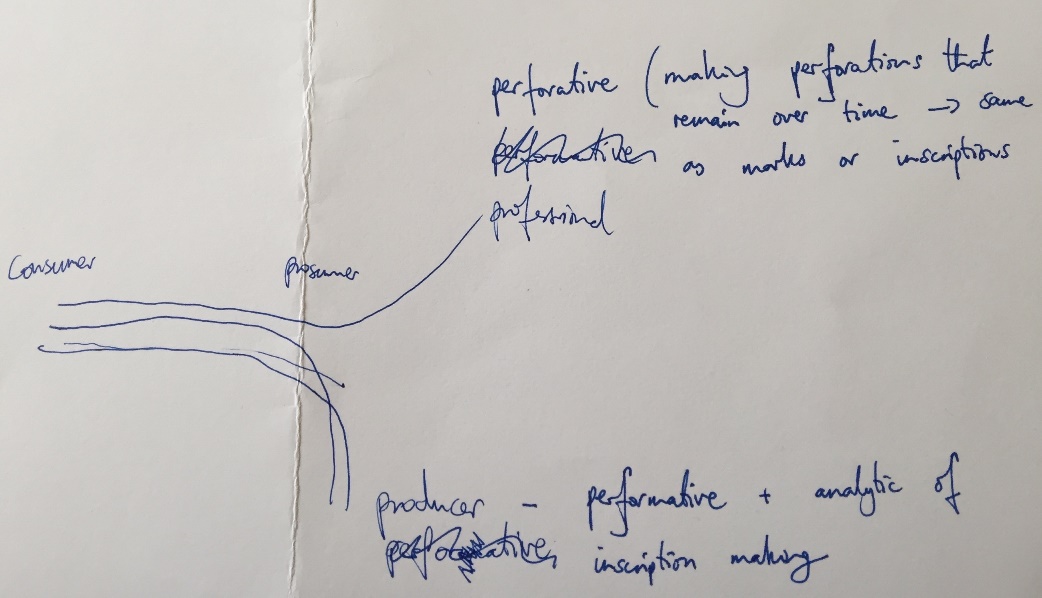 perforative (making perforations that
remain over time → same
performative as marks or inscriptions
professional
Consumer
prosumer
producer - performative + analytic of
inscription making